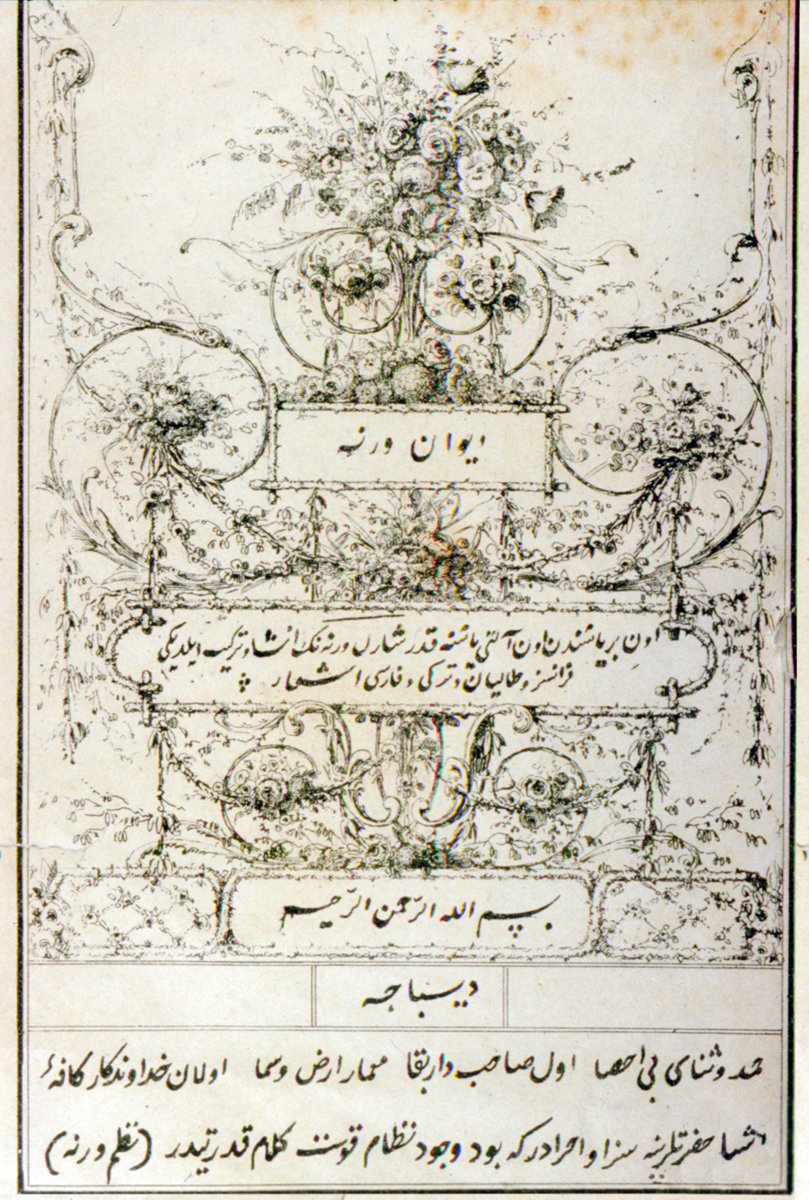 دیوان ورنه
اون بر یاشندن اون آلتی یاشنه قدر شارل ورنه نك انشا و ترکیب ایلدیکی
فرانسز و طالیان و ترکی و فارسی اشعار
بسم الله الرّحمن الرّحیم
دیباجه
حمد و ثنای بی احصا اول صاحب دار بقا معمار ارض و سما اولان خداوندکار کافهٔ
اشیا حضرتلرینه سزا و احرادر که بو وجود نظام قوت کلام قدرتیدر (نظم ورنه)